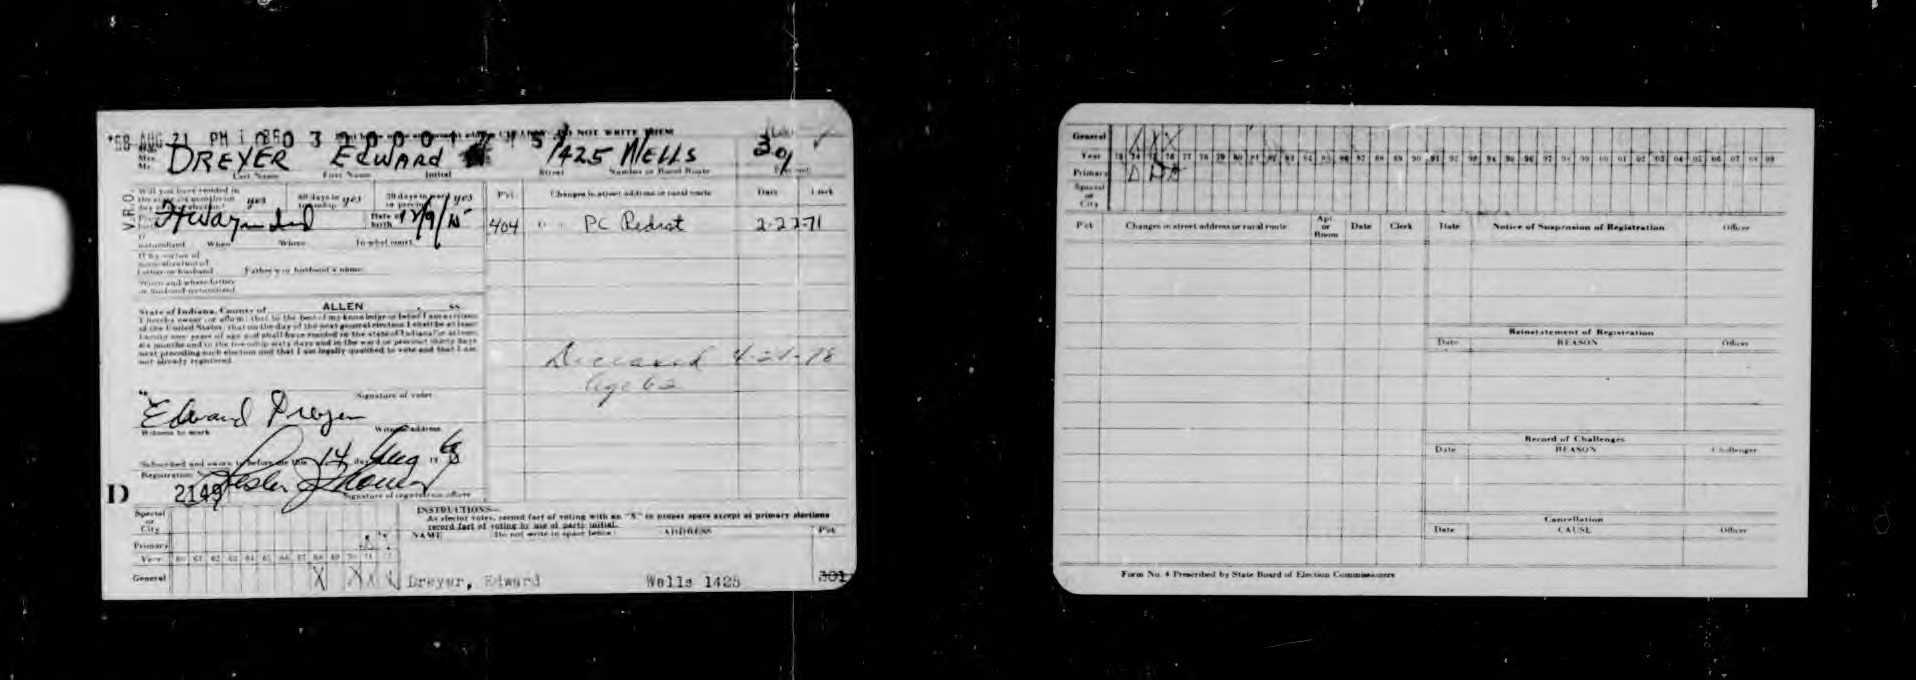 '68 AUG 21 PM 1
DO NOT WRITE THEM
Mr. DREYER EDWARD 1425 WELLS 301
Last Name First Name Initial Street Number or Rural Route Precinct
V.R.O.
Will you have resided in the state six months on day of election? yes 60 days in township yes 30 days in precinct yes
Pct. Changes in street address or rural route Date Clerk
Ft Wayne Ind Date of birth 12/9/15
404 " " PC Redist 2-22-71
If naturalized When Where In what court
If by virtue of naturalization of father or husband Father's or husband's name
When and where father or husband naturalized
State of Indiana, County of ALLEN, ss
I hereby swear (or affirm) that to the best of my knowledge or belief I am a citizen
of the United States, that on the day of the next general election I shall be at least
twenty-one years of age and shall have resided in the state of Indiana for at least
six months and in the township sixty days and in the ward or precinct thirty days
next preceding such election and that I am legally qualified to vote and that I am
not already registered.
Deceased 4-21-78
Age 62
Signature of voter
Edward Dreyer
Witness to mark Witness address
Subscribed and sworn to before me this 14 day Aug 19 68
Registration No.
D 2149
Signature of registration officer
INSTRUCTIONS—
As elector votes, record fact of voting with an "X" in proper space except at primary elections
record fact of voting by use of party initial.
NAME (Do not write in space below) ADDRESS Pct.
Special or City
Primary
Year 60 61 62 63 64 65 66 67 68 69 70 71 72
General X X X X
Dreyer, Edward Wells 1425 301
General X X X
Year 73 74 75 76 77 78 79 80 81 82 83 84 85 86 87 88 89 90 91 92 93 94 95 96 97 98 99 00 01 02 03 04 05 06 07 08 09
Primary D D D
Special or City
Pct Changes in street address or rural route Apt. or Room Date Clerk Date Notice of Suspension of Registration Officer
Reinstatement of Registration
Date REASON Officer
Record of Challenges
Date REASON Challenger
Cancellation
Date CAUSE Officer
Form No. 4 Prescribed by State Board of Election Commissioners